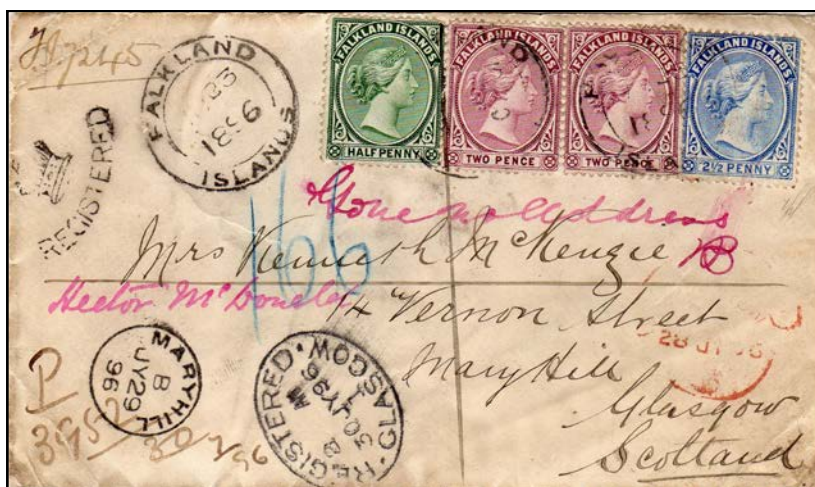 FALKLAND ISLANDS
1896
REGISTERED
FALKLAND ISLANDS
HALFPENNY
FALKLAND ISLANDS
TWO PENCE
FALKLAND ISLANDS
TWO PENCE
FALKLAND ISLANDS
2½ PENNY
Gone no address
166
Mrs Kenneth McKenzie
Hector McDonald
14 Vernon Street
MaryHill
Glasgow
Scotland
MARYHILL
B
JY 29
96
REGISTERED · GLASGOW
30 JY 96
P